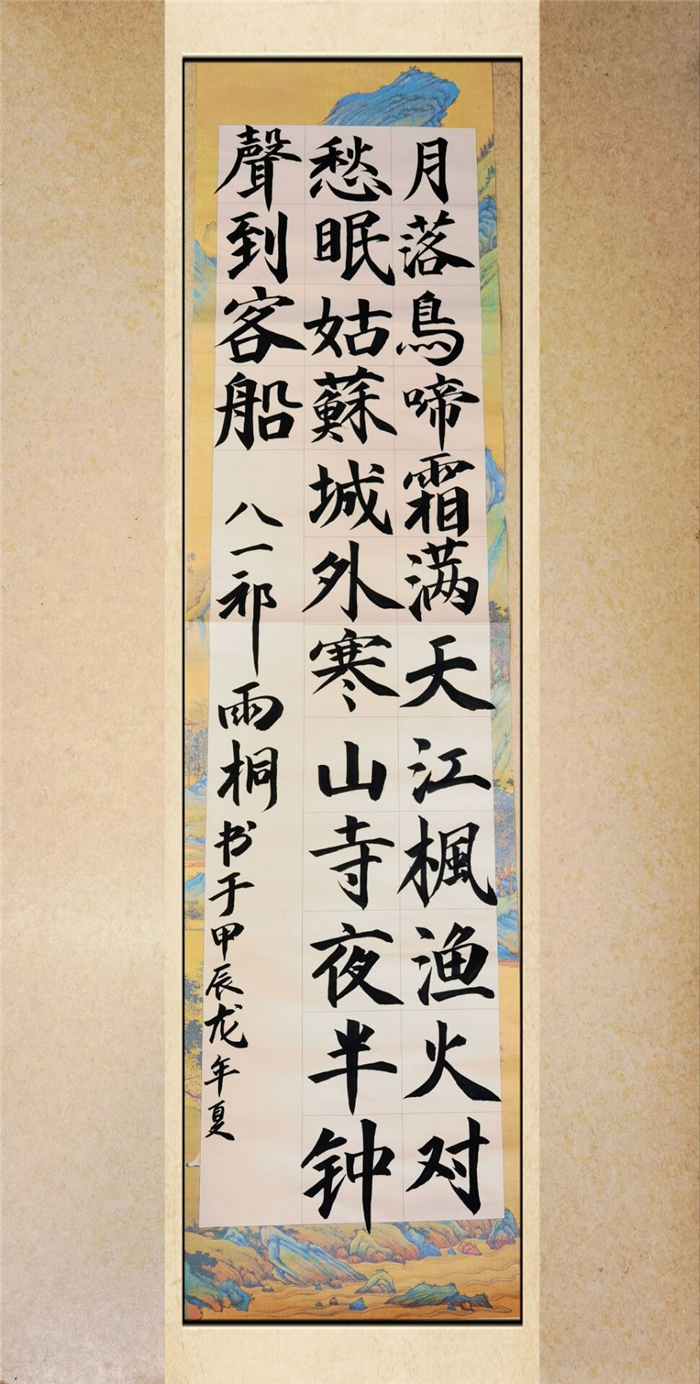 月落鳥啼霜满天江楓渔火对
愁眠姑蘇城外寒山寺夜半钟
聲到客船 八一祁雨桐书于甲辰龙年夏